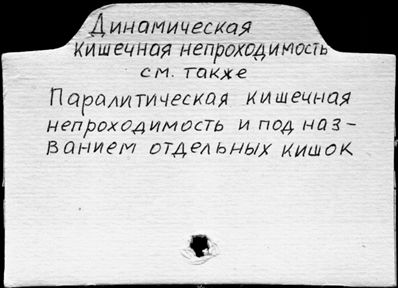 Динамическая
кишечная непроходимость
см. также
Паралитическая кишечная
непроходимость и под наз-
ванием отдельных кишок